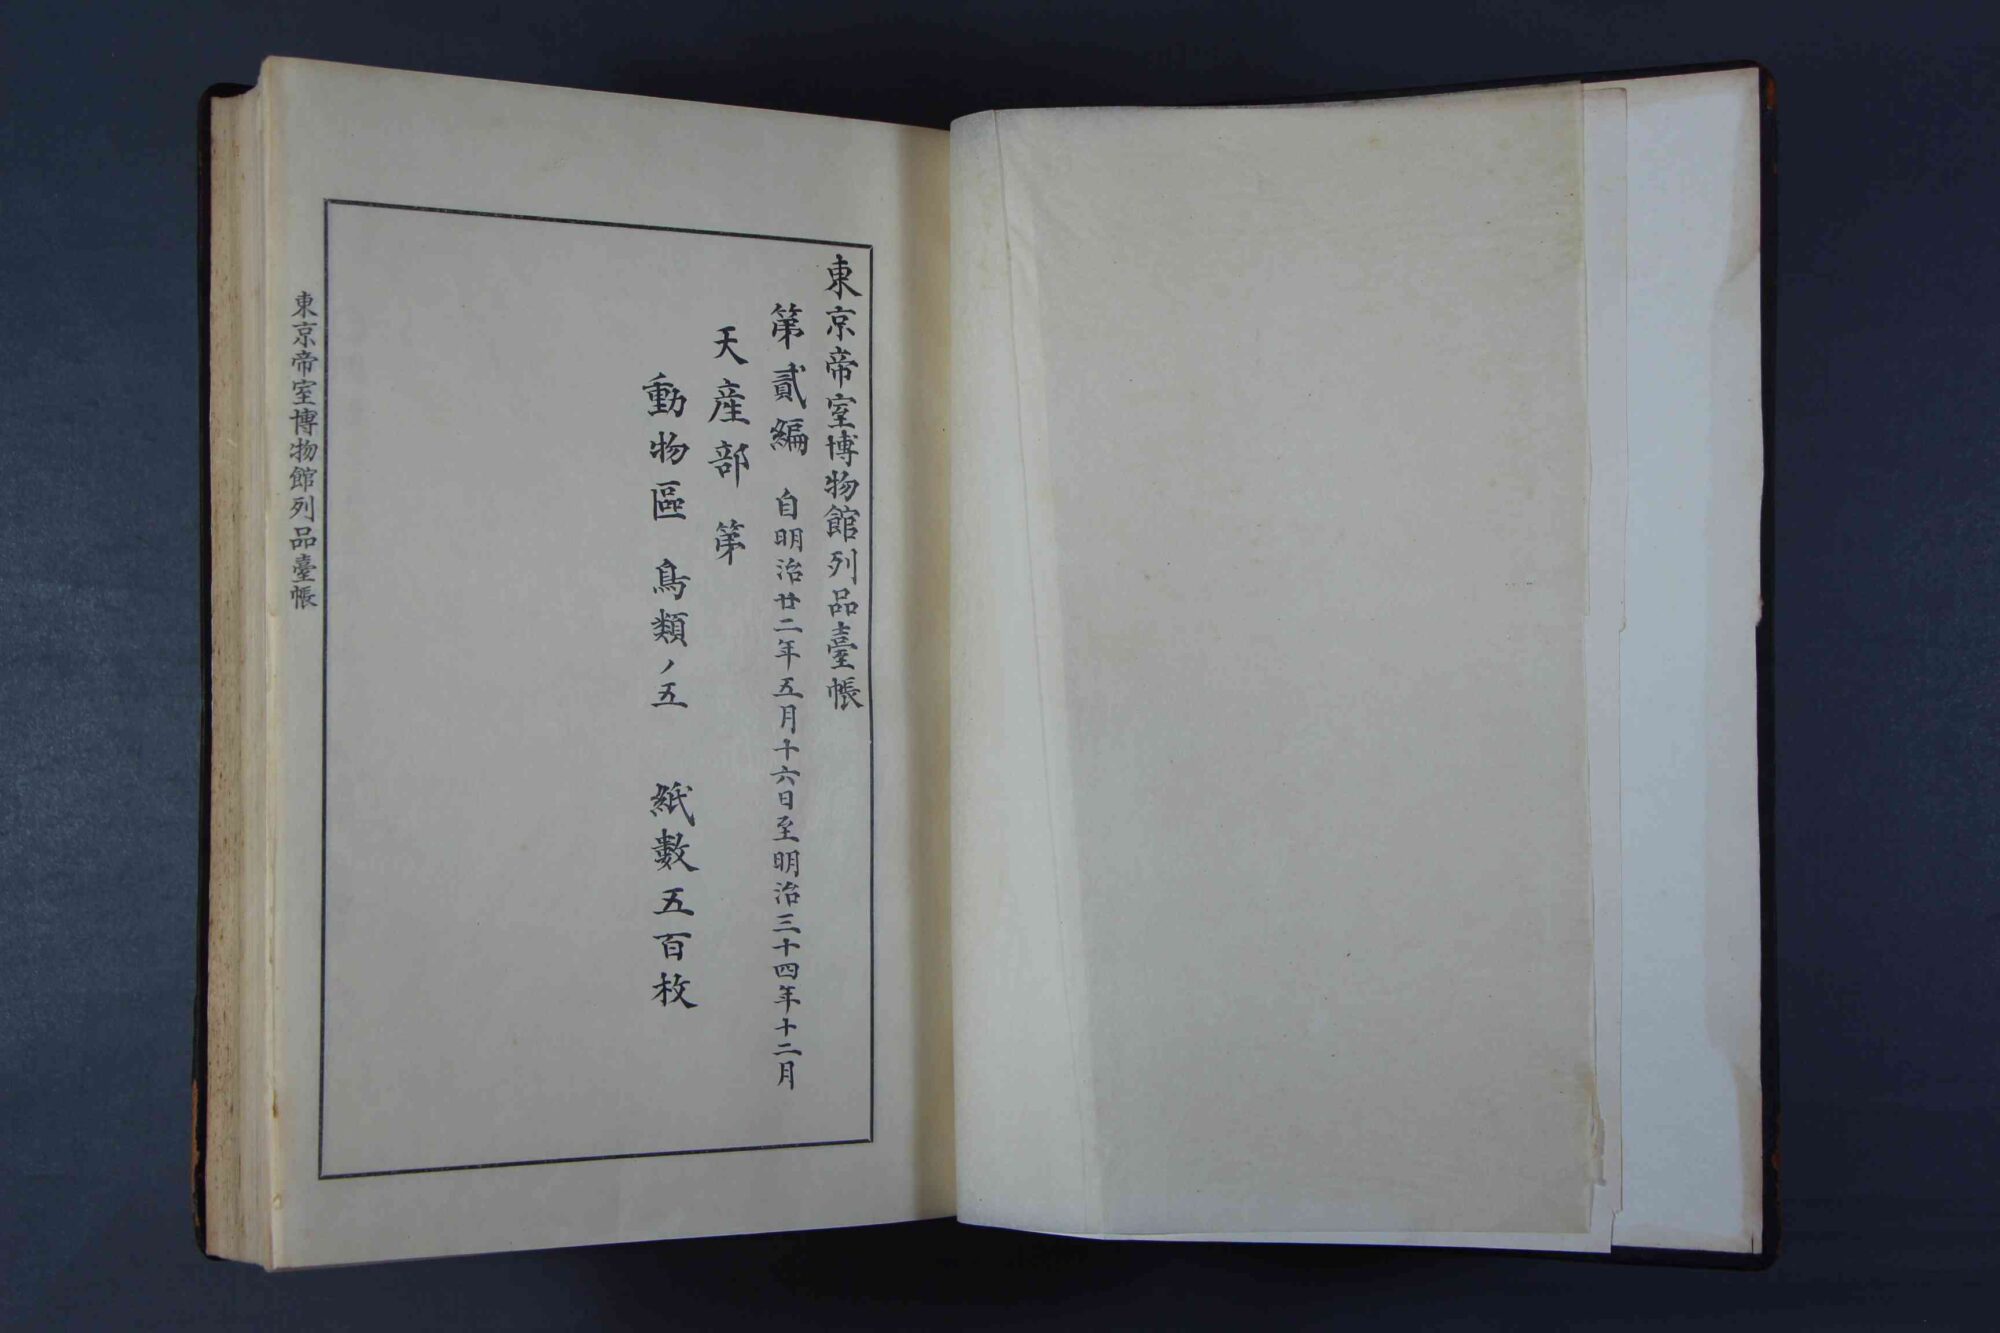 東京帝室博物館列品臺帳
第貳編 自明治廿二年五月十六日至明治三十四年十二月
天産部 第
動物區 鳥類ノ五 紙數五百枚
東京帝室博物館列品臺帳